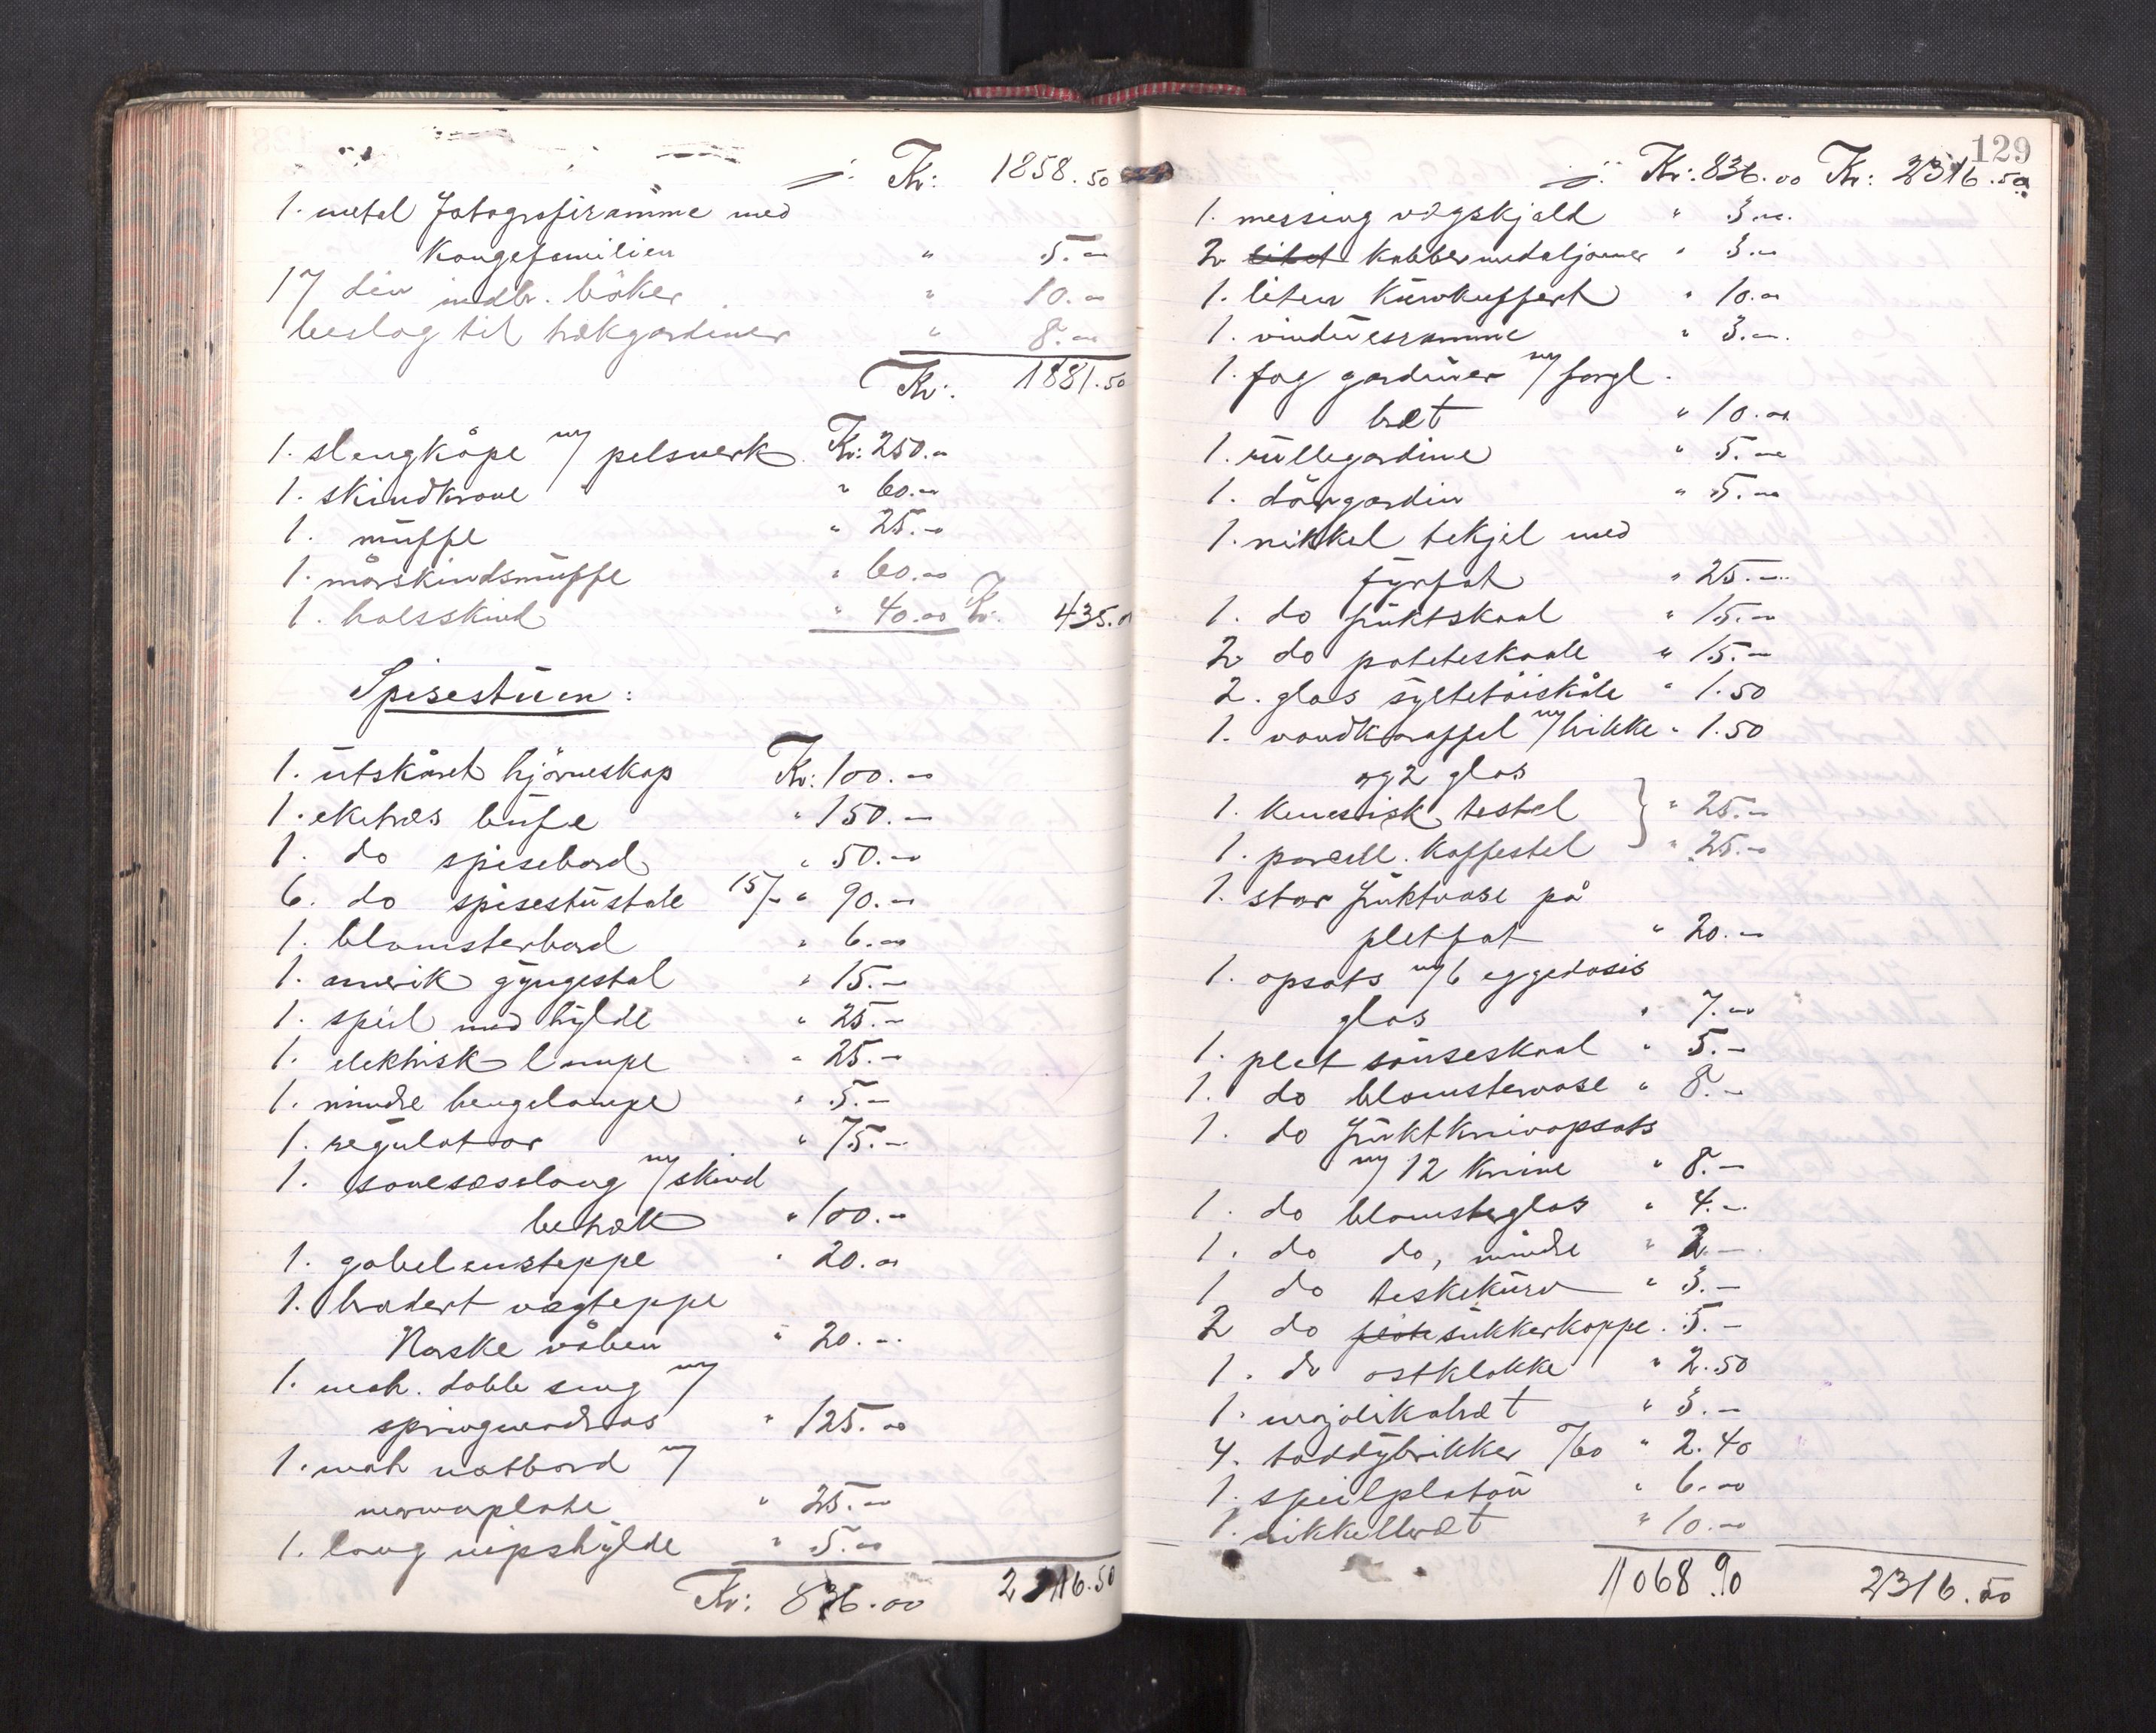 Kr: 1858.50
1. metal fotografiramme med
Kongefamilien " 5.00
17 div indb. böker " 10.00
beslag til trækgardiner " 8.00
Kr: 1881.50
1. slengkåpe m/ pelsverk Kr: 250.00
1. skindkrave " 60.00
1. muffe " 25.00
1. mårskindsmuffe " 60.00
1. halsskind " 40.00 Kr. 435.00
Spisestuen:
1. utskåret hjörneskap Kr: 100.00
1. eketræs bufe " 150.00
1. do spisebord " 50.00
6. do spisestustole 15/- " 90.00
1. blomsterbord " 6.00
1. amerik gyngestol " 15.00
1. speil med hylde " 25.00
1. elektrisk lampe " 25.00
1. mindre hengelampe " 5.00
1. regulator " 75.00
1. soveseselong m/ skind
betræk " 100.00
1. gobelensteppe " 20.00
1. brodert vægteppe
Norske våben " 20.00
1. mah. dobb seng m/
springmadras " 125.00
1. mah natbord m/
marmorplate " 25.00
1. lang nipshylde " 5.00
Kr: 836.00 2316.50
129
Kr: 836.00 Kr: 2316.50
1. messing vægskjold " 3.00
2 litet kobbermedaljoner " 3.00
1. liten kurvkuffert " 10.00
1. vinduesramme " 3.00
1. fag gardiner m/ forgl.
bræt " 10.00
1. rullegardine " 5.00
1. dörgardin " 5.00
1. nikkel tekjel med
fyrfat " 25.00
1. do fruktskaal " 15.00
2 do poteteskaale " 15.00
2. glas syltetöiskåle " 1.50
1. vandkaraffel m/ brikke " 1.50
og 2 glas
1. kinesisk testel " 25.00
1. porcell. kaffestel " 25.00
1. stor fruktvase på
pletfat " 20.00
1. opsats m/ 6 eggedosis
glas " 7.00
1. plet sauseskaal " 5.-
1. do blomstervase " 8.-
1. do fruktknivopsats
m/ 12 knive " 8.-
1. do blomsterglas " 4.-
1. do do, mindre " 2.-
1 do teskekurv " 3.-
2 do sukkerkoppe. 5.-
1. do ostklokke " 2.50
1. majolikabræt " 3.-
4. toddybrikker /60 " 2.40
1. speilplatou " 6.00
1. nikkelbræt " 10.00
1068 90 2316.50